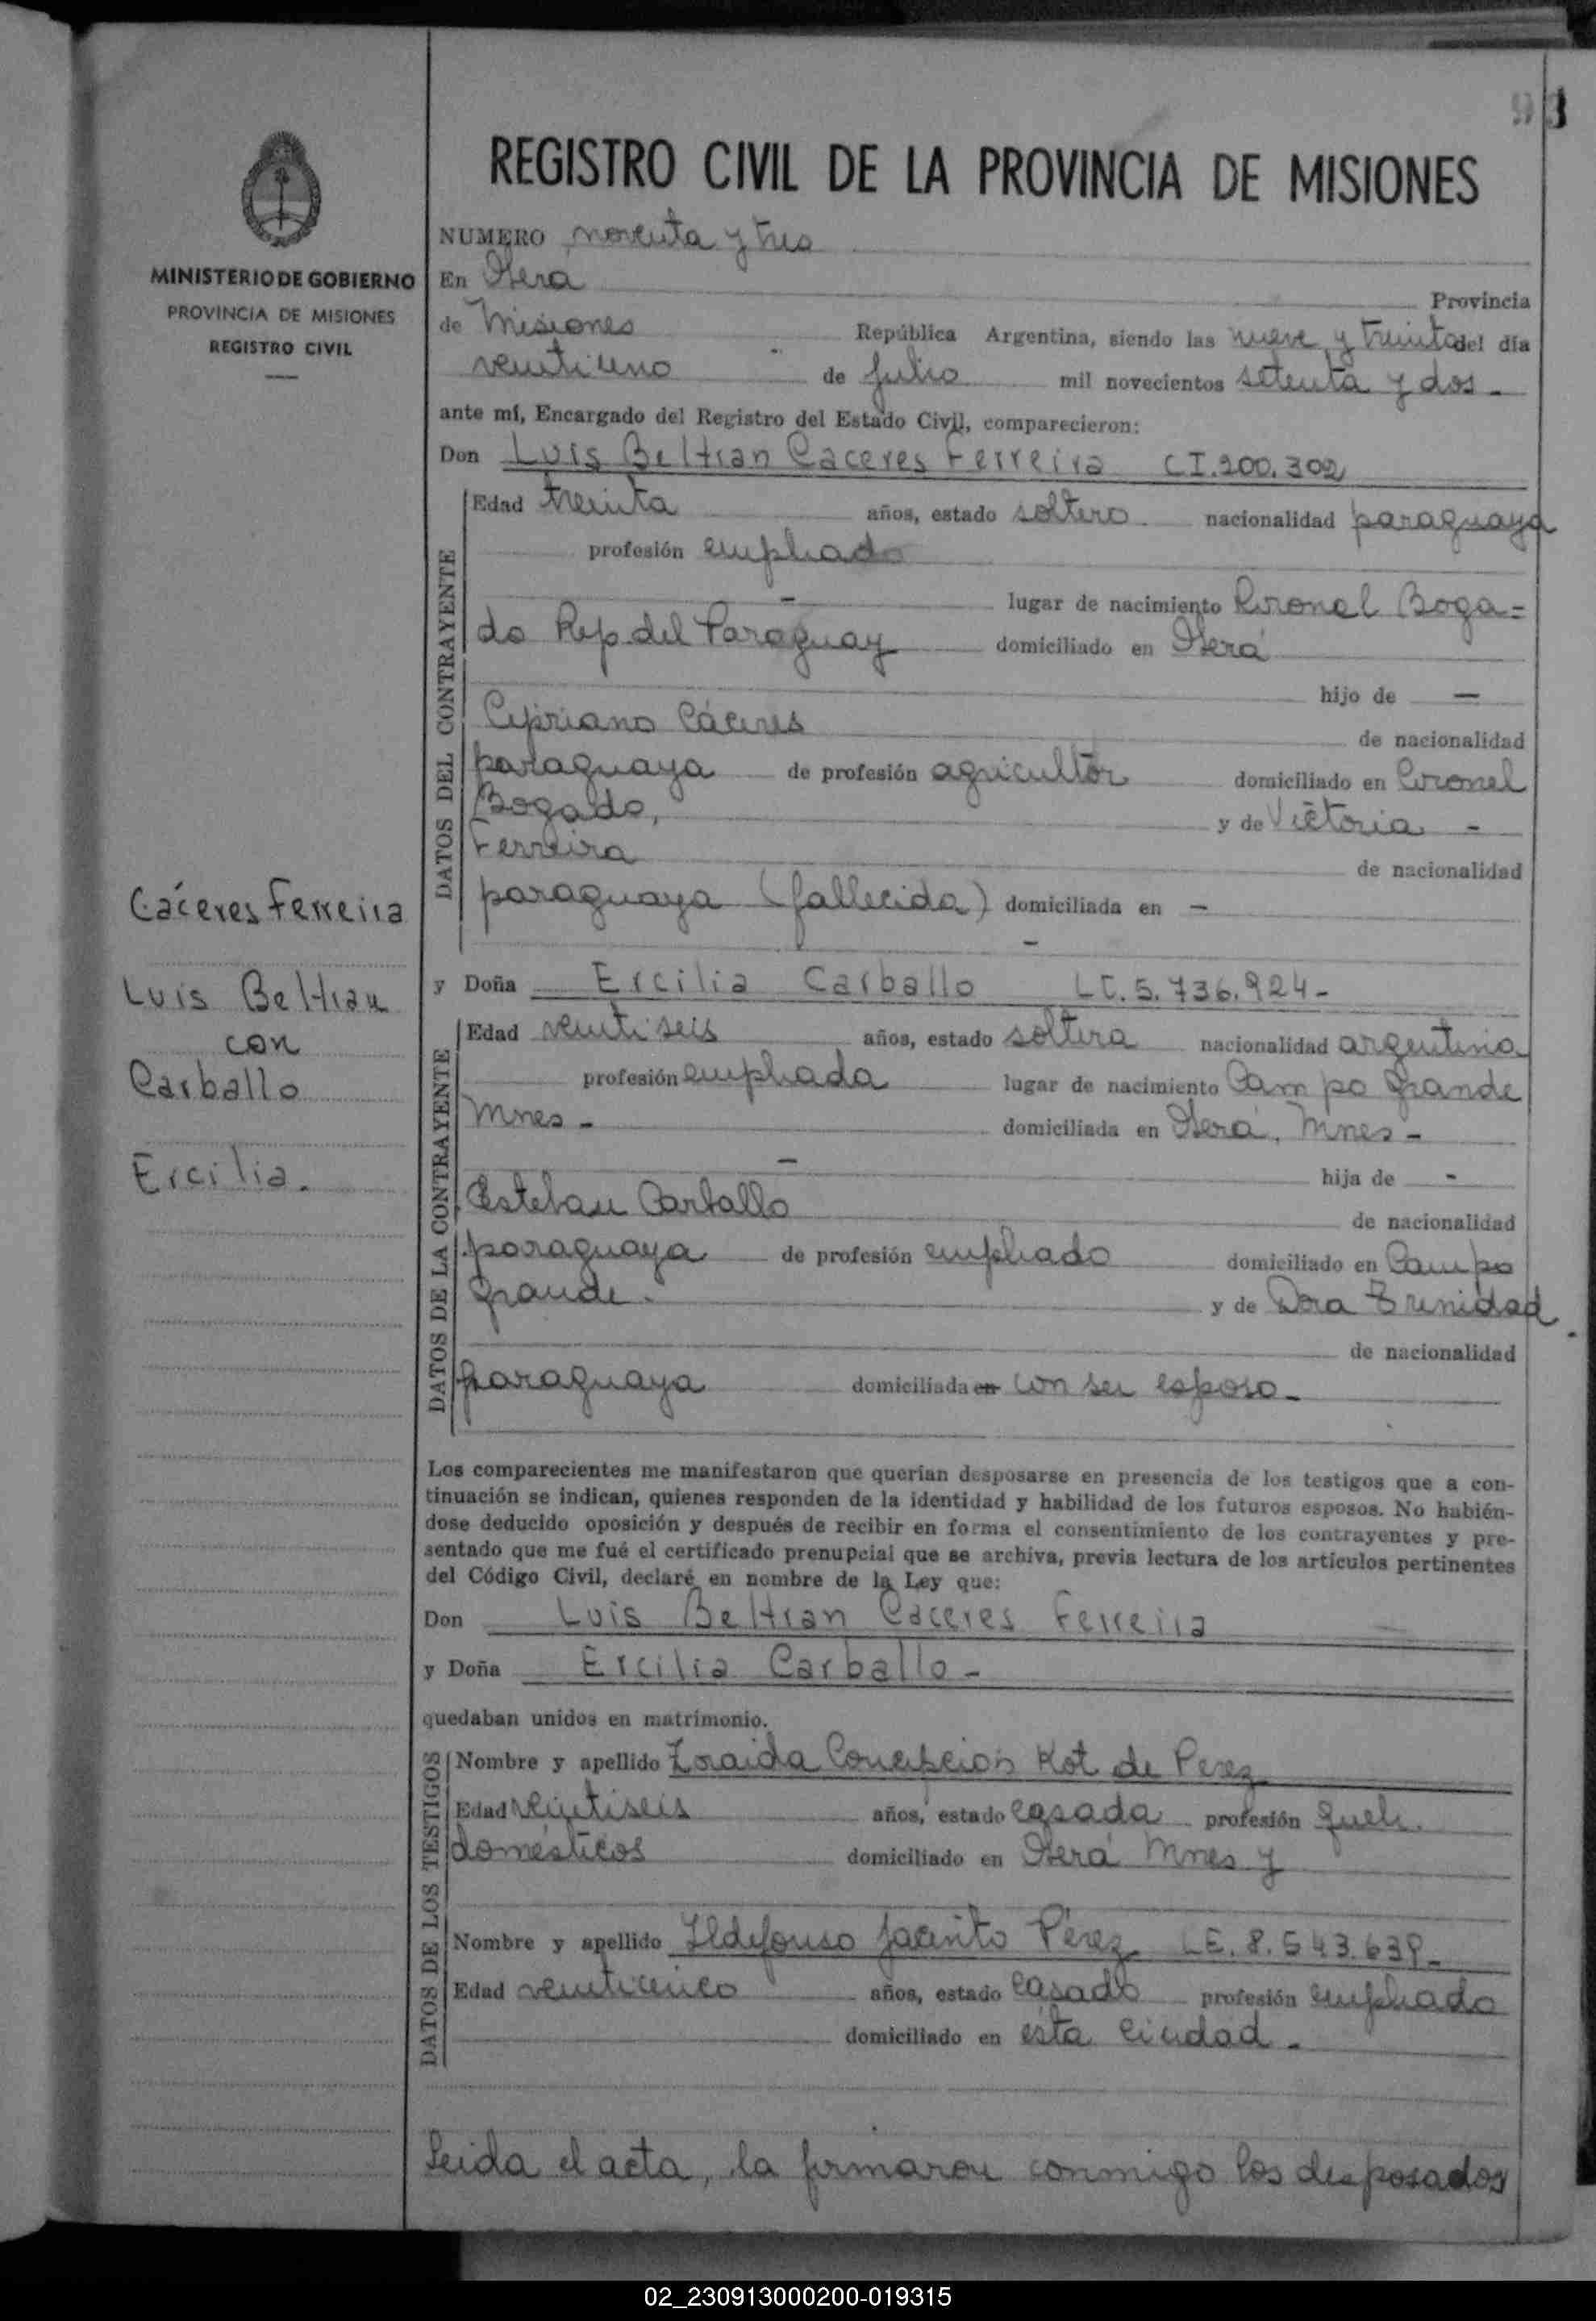 93
REGISTRO CIVIL DE LA PROVINCIA DE MISIONES
MINISTERIO DE GOBIERNO
PROVINCIA DE MISIONES
REGISTRO CIVIL
NUMERO noventa y tres
En Oberá Provincia
de Misiones República Argentina, siendo las nueve y treinta del día
veintiuno de Julio mil novecientos setenta y dos -
ante mí, Encargado del Registro del Estado Civil, comparecieron:
Don Luis Beltran Caceres Ferreira CI.200.302
DATOS DEL CONTRAYENTE
Edad treinta años, estado soltero nacionalidad paraguaya
profesión empleado
- lugar de nacimiento Coronel Boga=
do Rep del Paraguay domiciliado en Oberá
hijo de -
Cipriano Cáceres de nacionalidad
paraguaya de profesión agricultor domiciliado en Coronel
Bogado, y de Victoria -
Ferreira de nacionalidad
paraguaya (fallecida) domiciliada en -
-
y Doña Ercilia Carballo LC. 5.736.924-
DATOS DE LA CONTRAYENTE
Edad veintiseis años, estado soltera nacionalidad argentina
profesión empleada lugar de nacimiento Campo Grande
Mnes - domiciliada en Oberá, Mnes -
- hija de -
Esteban Carballo de nacionalidad
paraguaya de profesión empleado domiciliado en Campo
Grande. y de Dora Trinidad
de nacionalidad
paraguaya domiciliada en con su esposo -
Los comparecientes me manifestaron que querían desposarse en presencia de los testigos que a con-
tinuación se indican, quienes responden de la identidad y habilidad de los futuros esposos. No habién-
dose deducido oposición y después de recibir en forma el consentimiento de los contrayentes y pre-
sentado que me fué el certificado prenupcial que se archiva, previa lectura de los artículos pertinentes
del Código Civil, declaré en nombre de la Ley que:
Don Luis Beltran Caceres Ferreira
y Doña Ercilia Carballo -
quedaban unidos en matrimonio.
DATOS DE LOS TESTIGOS
Nombre y apellido Zoraida Concepcion Kot de Perez
Edad veintiseis años, estado casada profesión queh.
domésticos domiciliado en Oberá Mnes y
Nombre y apellido Ildefonso Jacinto Pérez LE. 8.543.639-
Edad veinticinco años, estado casado profesión empleado
domiciliado en ésta ciudad -
Leida el acta, la firmaron conmigo los desposados
Cáceres Ferreira
Luis Beltran
con
Carballo
Ercilia.
02_230913000200-019315